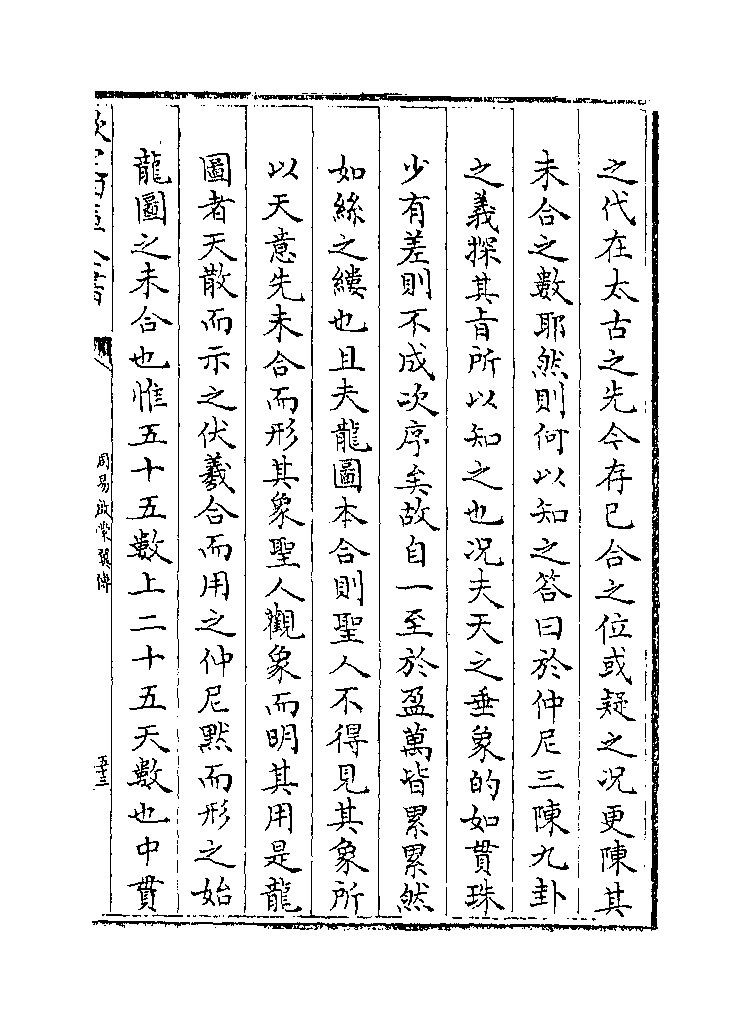 之代在太古之先今存已合之位或疑之况更陳其
未合之數耶然則何以知之答曰於仲尼三陳九卦
之義探其㫖所以知之也况夫天之垂象的如貫珠
少有差則不成次序矣故自一至於盈萬皆累累然
如絲之縷也且夫龍圖本合則聖人不得見其象所
以天意先未合而形其象聖人觀象而明其用是龍
圖者天散而示之伏羲合而用之仲尼默而形之始
龍圖之未合也惟五十五數上二十五天數也中貫
欽定四庫全書
周易啟蒙翼傳
五十三